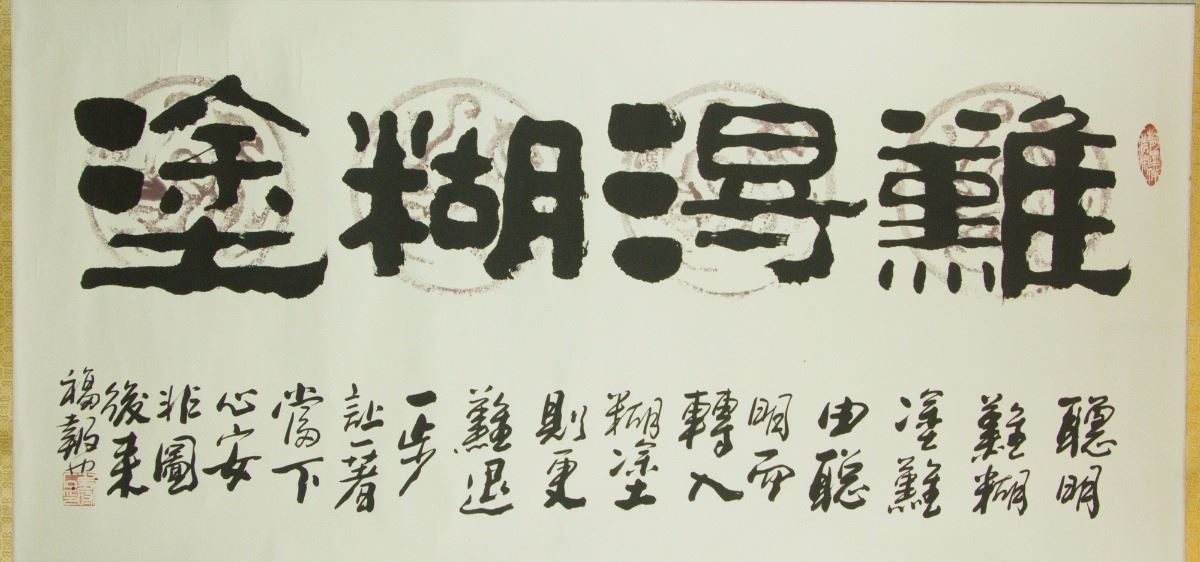 難得糊塗
聰明
難糊
塗難
由聰
明而
轉入
糊塗
則更
難退
一步
讓一著
當下
心安
非圖
後來
福報也